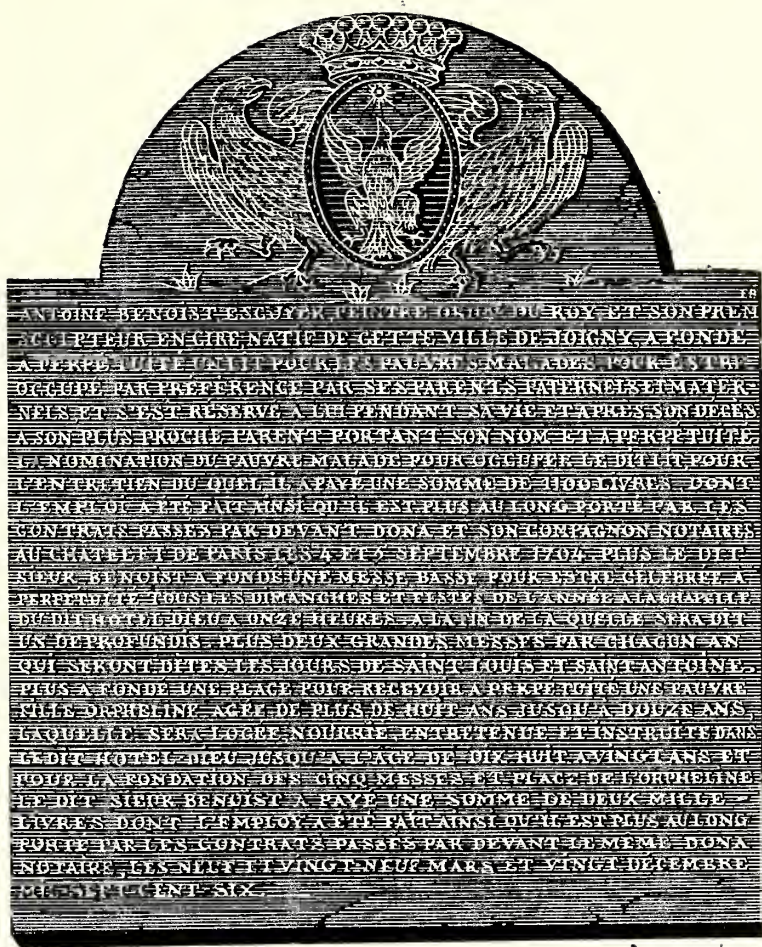 ER
ANTOINE BENOIST ESCUYER PEINTRE ORDRE DU ROY ET SON PREM
SCULPTEUR EN CIRE NATIF DE CETTE VILLE DE JOIGNY, A FONDE
A PERPETUITE UN LIT POUR LES PAUVRES MALADES POUR ESTRE
OCCUPE PAR PREFERENCE PAR SES PARENTS PATERNELS ET MATER-
NELS, ET S'EST RESERVE A LUI PENDANT SA VIE ET APRES SON DECES
A SON PLUS PROCHE PARENT PORTANT SON NOM ET A PERPETUITE
LA NOMINATION DU PAUVRE MALADE POUR OCCUPER LE DIT LIT POUR
L'ENTRETIEN DU QUEL IL A PAYÉ UNE SOMME DE LIVRES, DONT
L'EMPLOI A ÉTÉ FAIT AINSI QU'IL EST PLUS AU LONG PORTE PAR LES
CONTRATS PASSES PAR DEVANT DONA ET SON COMPAGNON NOTAIRES
AU CHATELET DE PARIS LES 4 ET 5 SEPTEMBRE 1704. PLUS LE DIT
SIEUR BENOIST A FONDE UNE MESSE BASSE POUR ESTRE CELEBREE A
PERPETUITE TOUS LES DIMANCHES ET FESTES DE L'ANNÉE A LA CHAPELLE
DU DIT HOTEL DIEU A ONZE HEURES, A LA FIN DE LA QUELLE SERA DIT
UN DE PROFUNDIS. PLUS DEUX GRANDES MESSES PAR CHACUN AN
QUI SERONT DITES LES JOURS DE SAINT LOUIS ET SAINT ANTOINE.
PLUS A FONDE UNE PLACE POUR RECEVOIR A PERPETUITE UNE PAUVRE
FILLE ORPHELINE AGÉE DE PLUS DE HUIT ANS JUSQU'A DOUZE ANS,
LAQUELLE SERA LOGÉE NOURRIE ENTRETENUE ET INSTRUITE DANS
LEDIT HOTEL-DIEU JUSQU'A L'AGE DE DIX HUIT A VINGT ANS ET
POUR LA FONDATION DES CINQ MESSES ET PLACE DE L'ORPHELINE
LE DIT SIEUR BENOIST A PAYÉ UNE SOMME DE DEUX MILLE -
LIVRES DONT L'EMPLOY A ÉTÉ FAIT AINSI QU'IL EST PLUS AU LONG
PORTE PAR LES CONTRATS PASSES PAR DEVANT LE MÊME DONA
NOTAIRE, LES NEUF ET VINGT-NEUF MARS ET VINGT DECEMBRE
MIL SEPT CENT SIX.